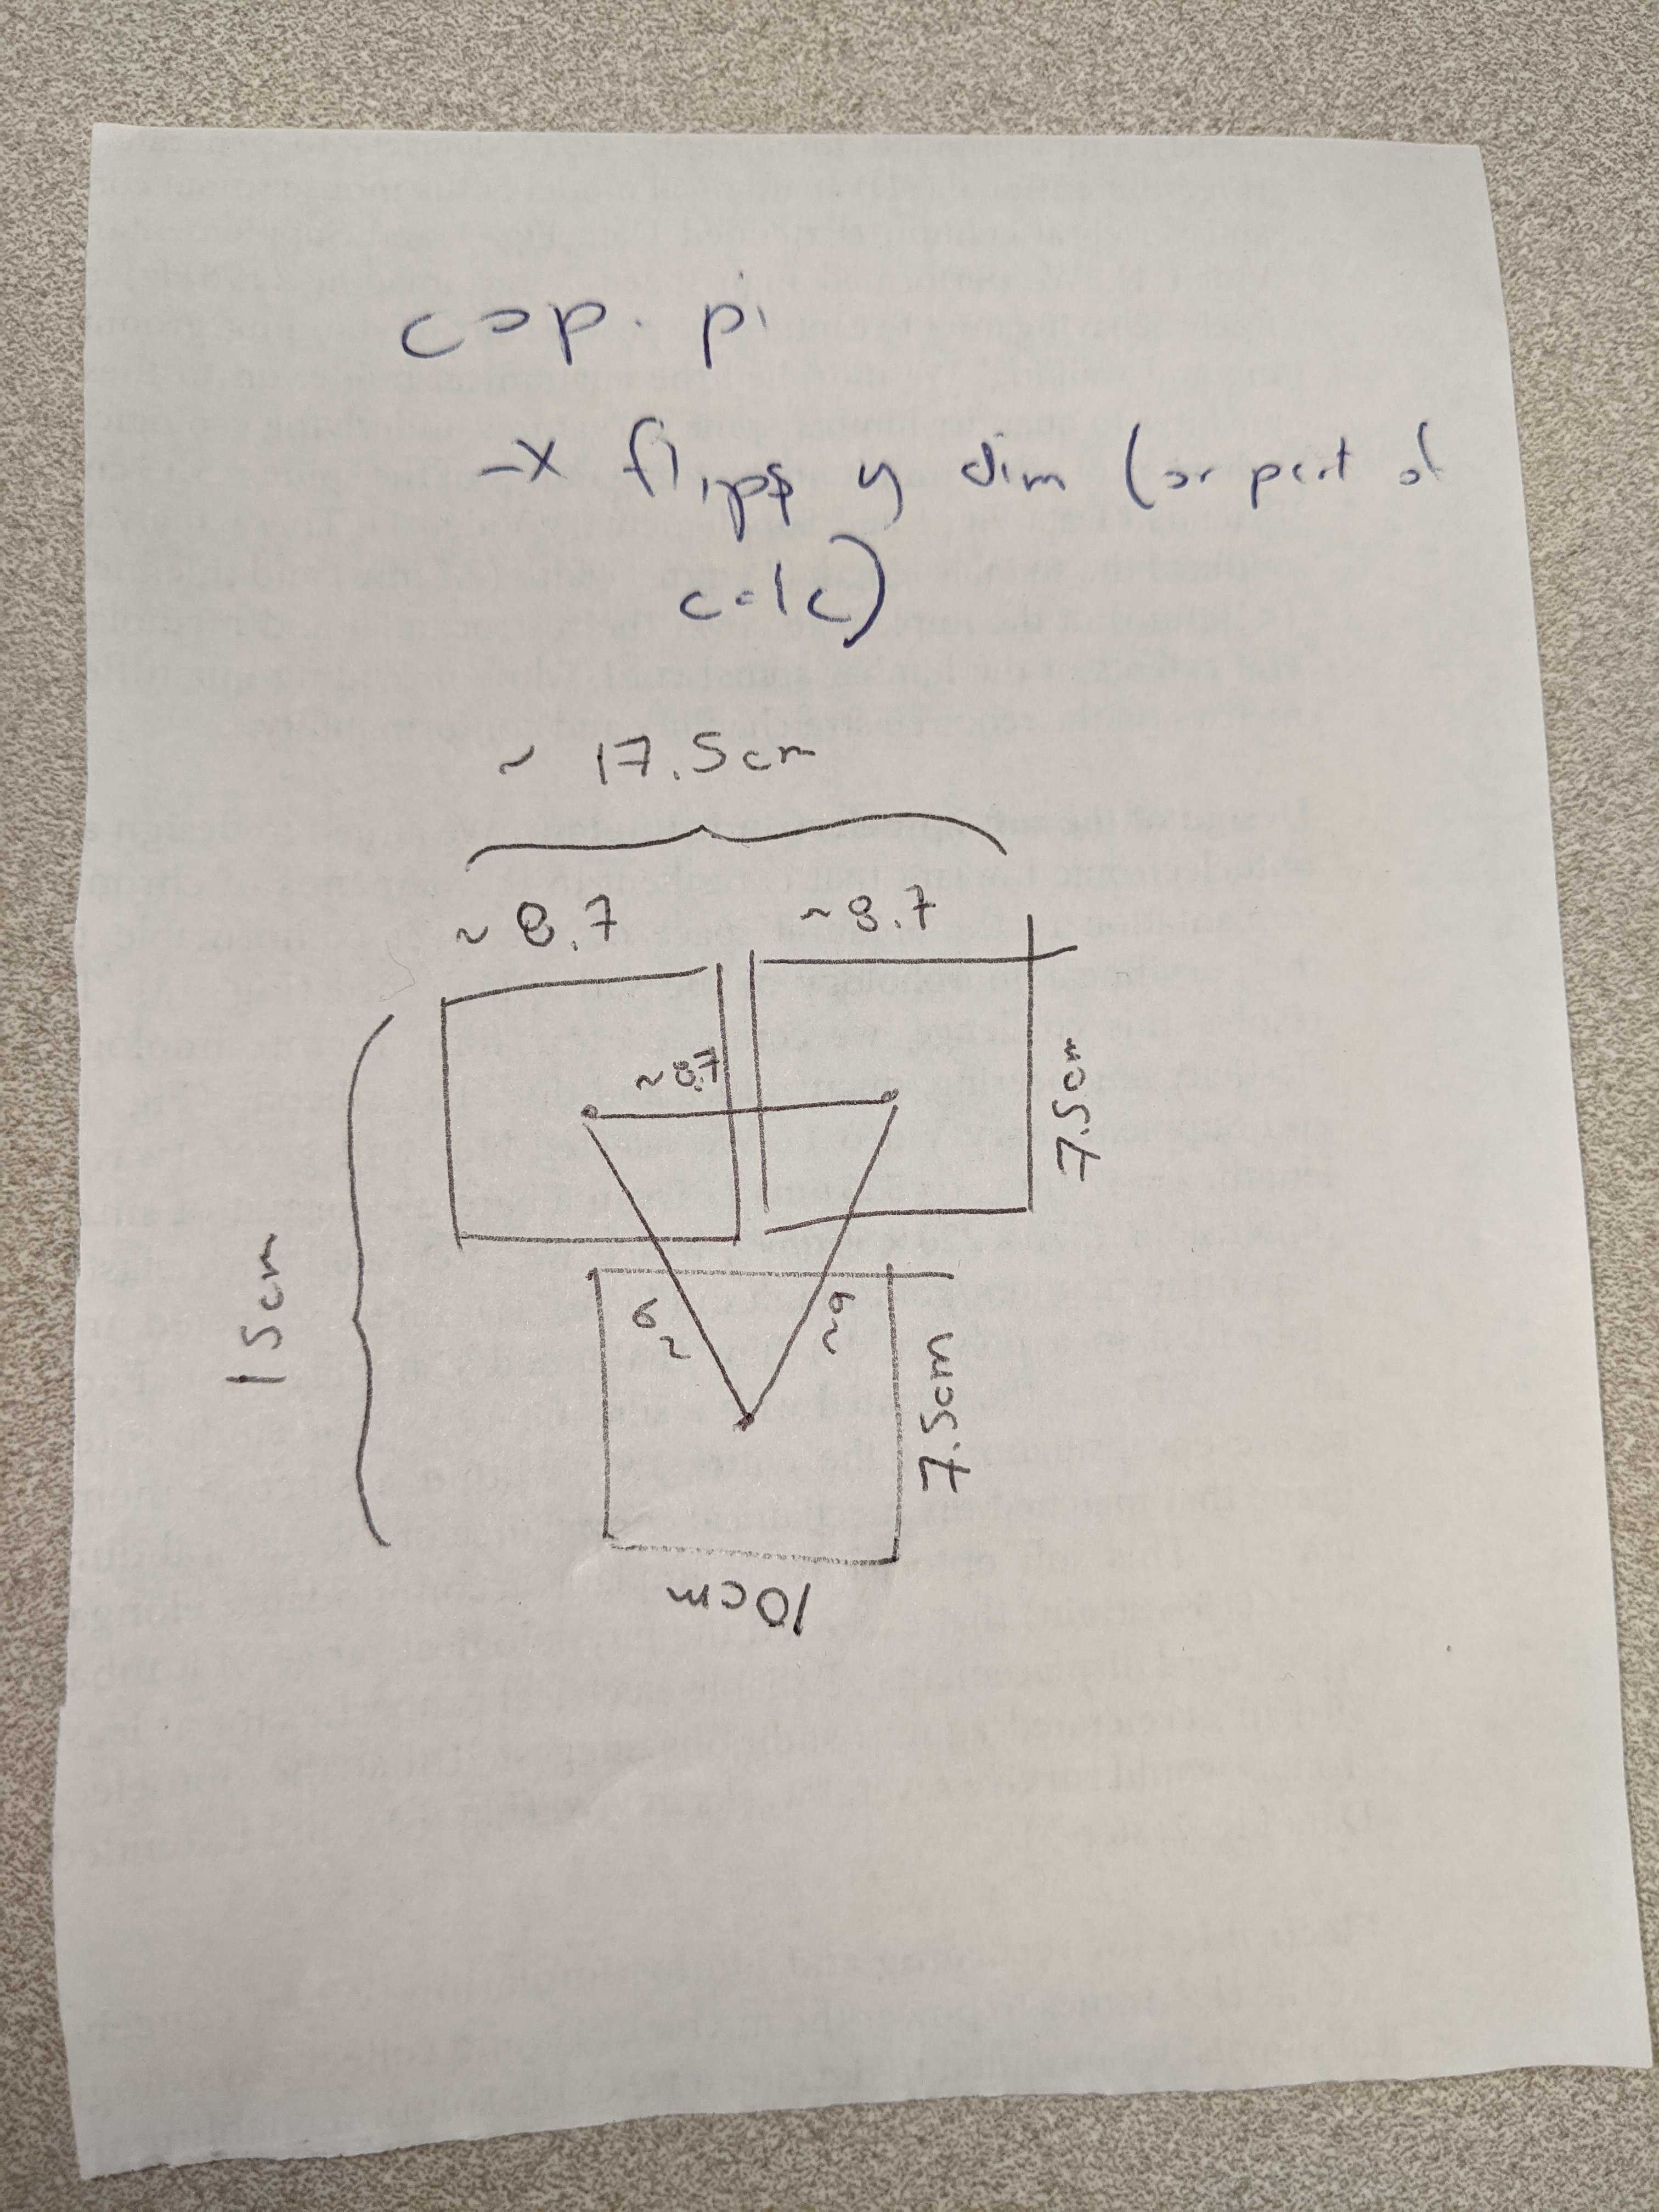 cop. pi
-x flipps y dim (or part of
calc)
~ 17.5cm
~ 8.7
~ 8.7
~8.7
7.5cm
15cm
~9
~9
7.5cm
10cm